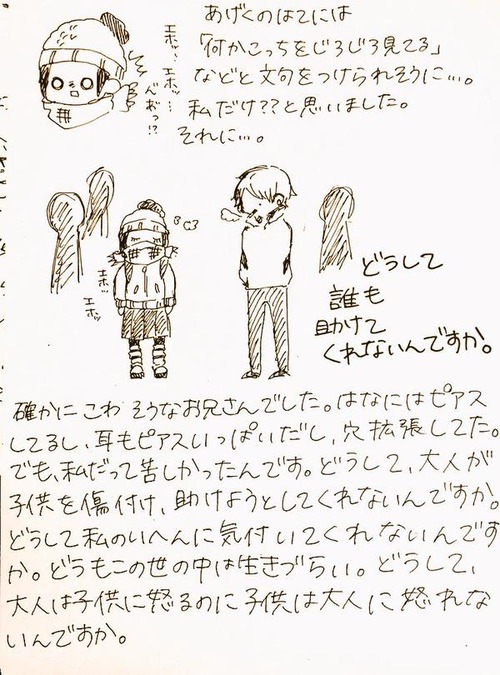 あげくのはてには
「何かこっちをじろじろ見てる」
などと文句をつけられそうに…。
私だけ??と思いました。
それに…。
エホッ…
エホッ…
べあっ!?
エホッ
エホッ
どうして
誰も
助けて
くれないんですか。
確かにこわそうなお兄さんでした。はなにはピアス
してるし、耳もピアスいっぱいだし、穴拡張してた。
でも、私だって苦しかったんです。どうして、大人が
子供を傷付け、助けようとしてくれないんですか。
どうして私のいへんに気付いてくれないんです
か。どうもこの世の中は生きづらい。どうして、
大人は子供に怒るのに子供は大人に怒れな
いんですか。